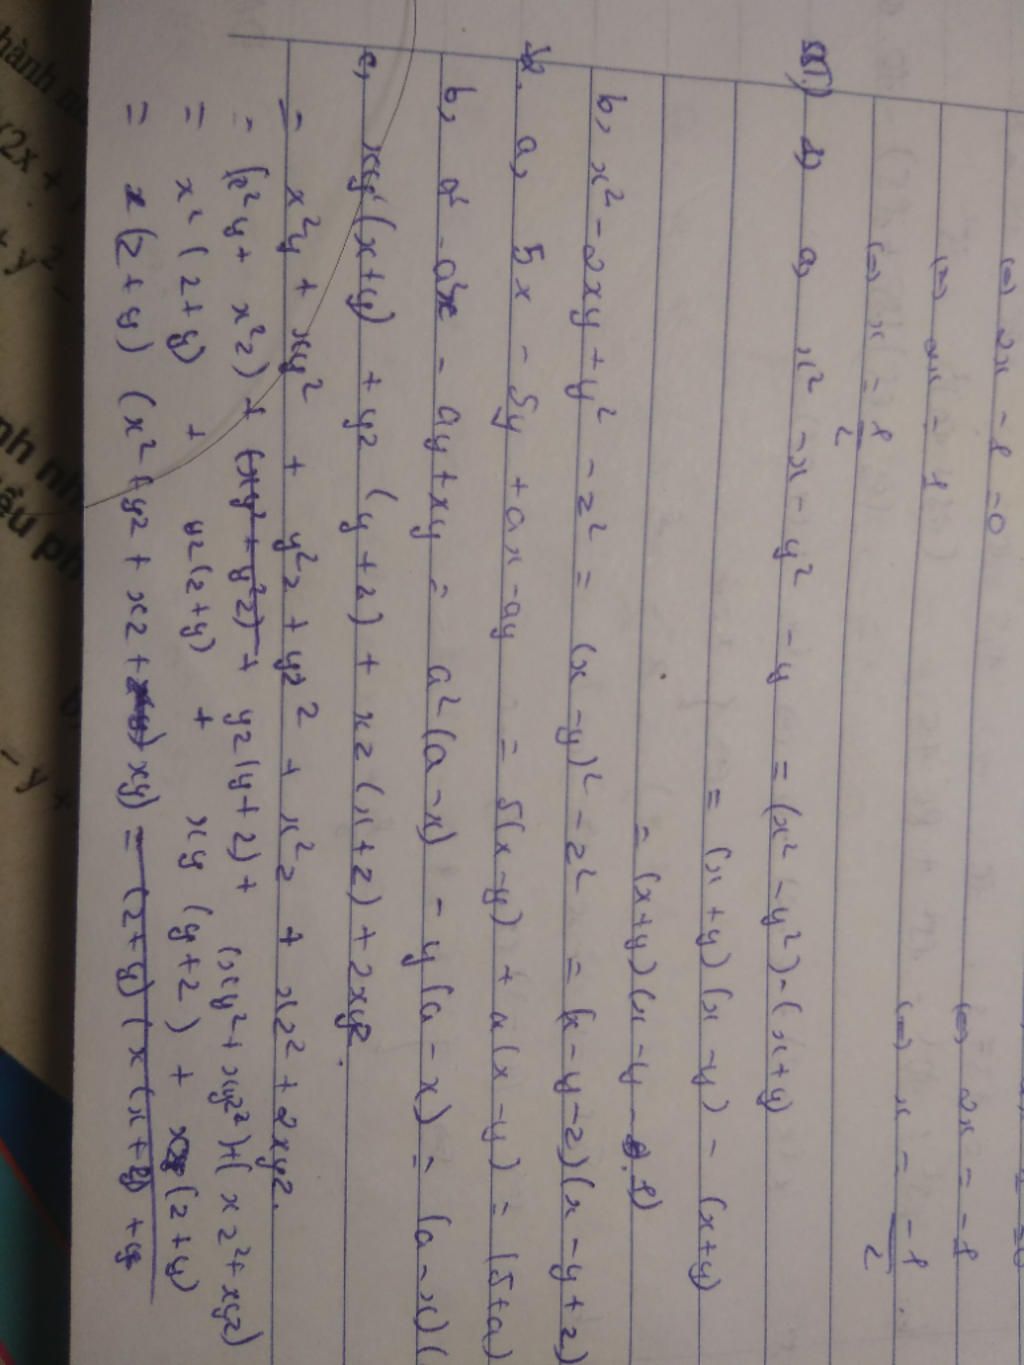 (=) 2x - 1 = 0
(=) 2x = 1
(=) 2x = -1
(=) x = 1/2
(=) x = -1/2
1) a, x² - x - y² - y = (x² - y²) - (x + y)
= (x + y)(x - y) - (x + y)
= (x + y)(x - y - 1)
b, x² - 2xy + y² - z² = (x - y)² - z² = (x - y - z)(x - y + z)
2. a, 5x - 5y + ax - ay = 5(x - y) + a(x - y) = (5 + a)
b, a³ - a²x - ay + xy = a²(a - x) - y(a - x) = (a - x)(
c, xy(x + y) + yz(y + z) + xz(x + z) + 2xyz.
= x²y + xy² + y²z + yz² + x²z + xz² + 2xyz.
= (x²y + x²z) + (xy² + y²z) + yz(y + z) + (xy² + xyz) + (xz² + xyz)
= x²(z + y) + yz(z + y) + xy(y + z) + xz(z + y)
= (z + y)(x² + yz + xz + xy) = (z + y)(x(x + y) + y
hành
(2x +
+ y² -
ếu ph
- y